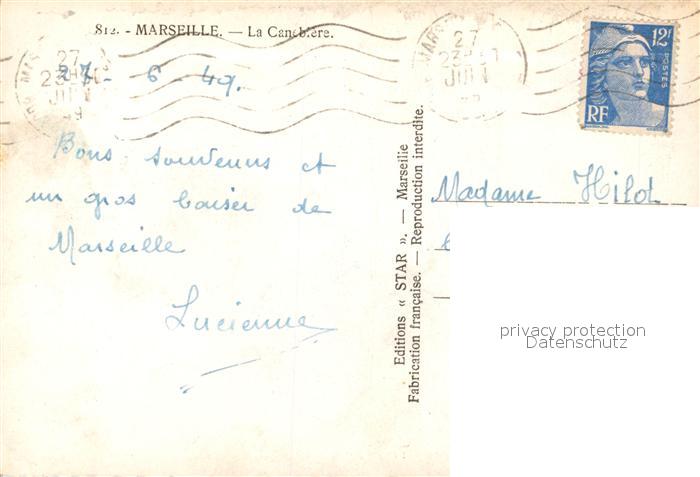 812. - MARSEILLE. — La Canebière.
27
23H
JUIN
27
23H
JUIN
12F
POSTES
RF
27 - 6 - 49.
Bons souvenirs et
un gros baiser de
Marseille
Lucienne
Editions « STAR ». — Marseille
Fabrication française. — Reproduction interdite.
Madame Hilot
privacy protection
Datenschutz